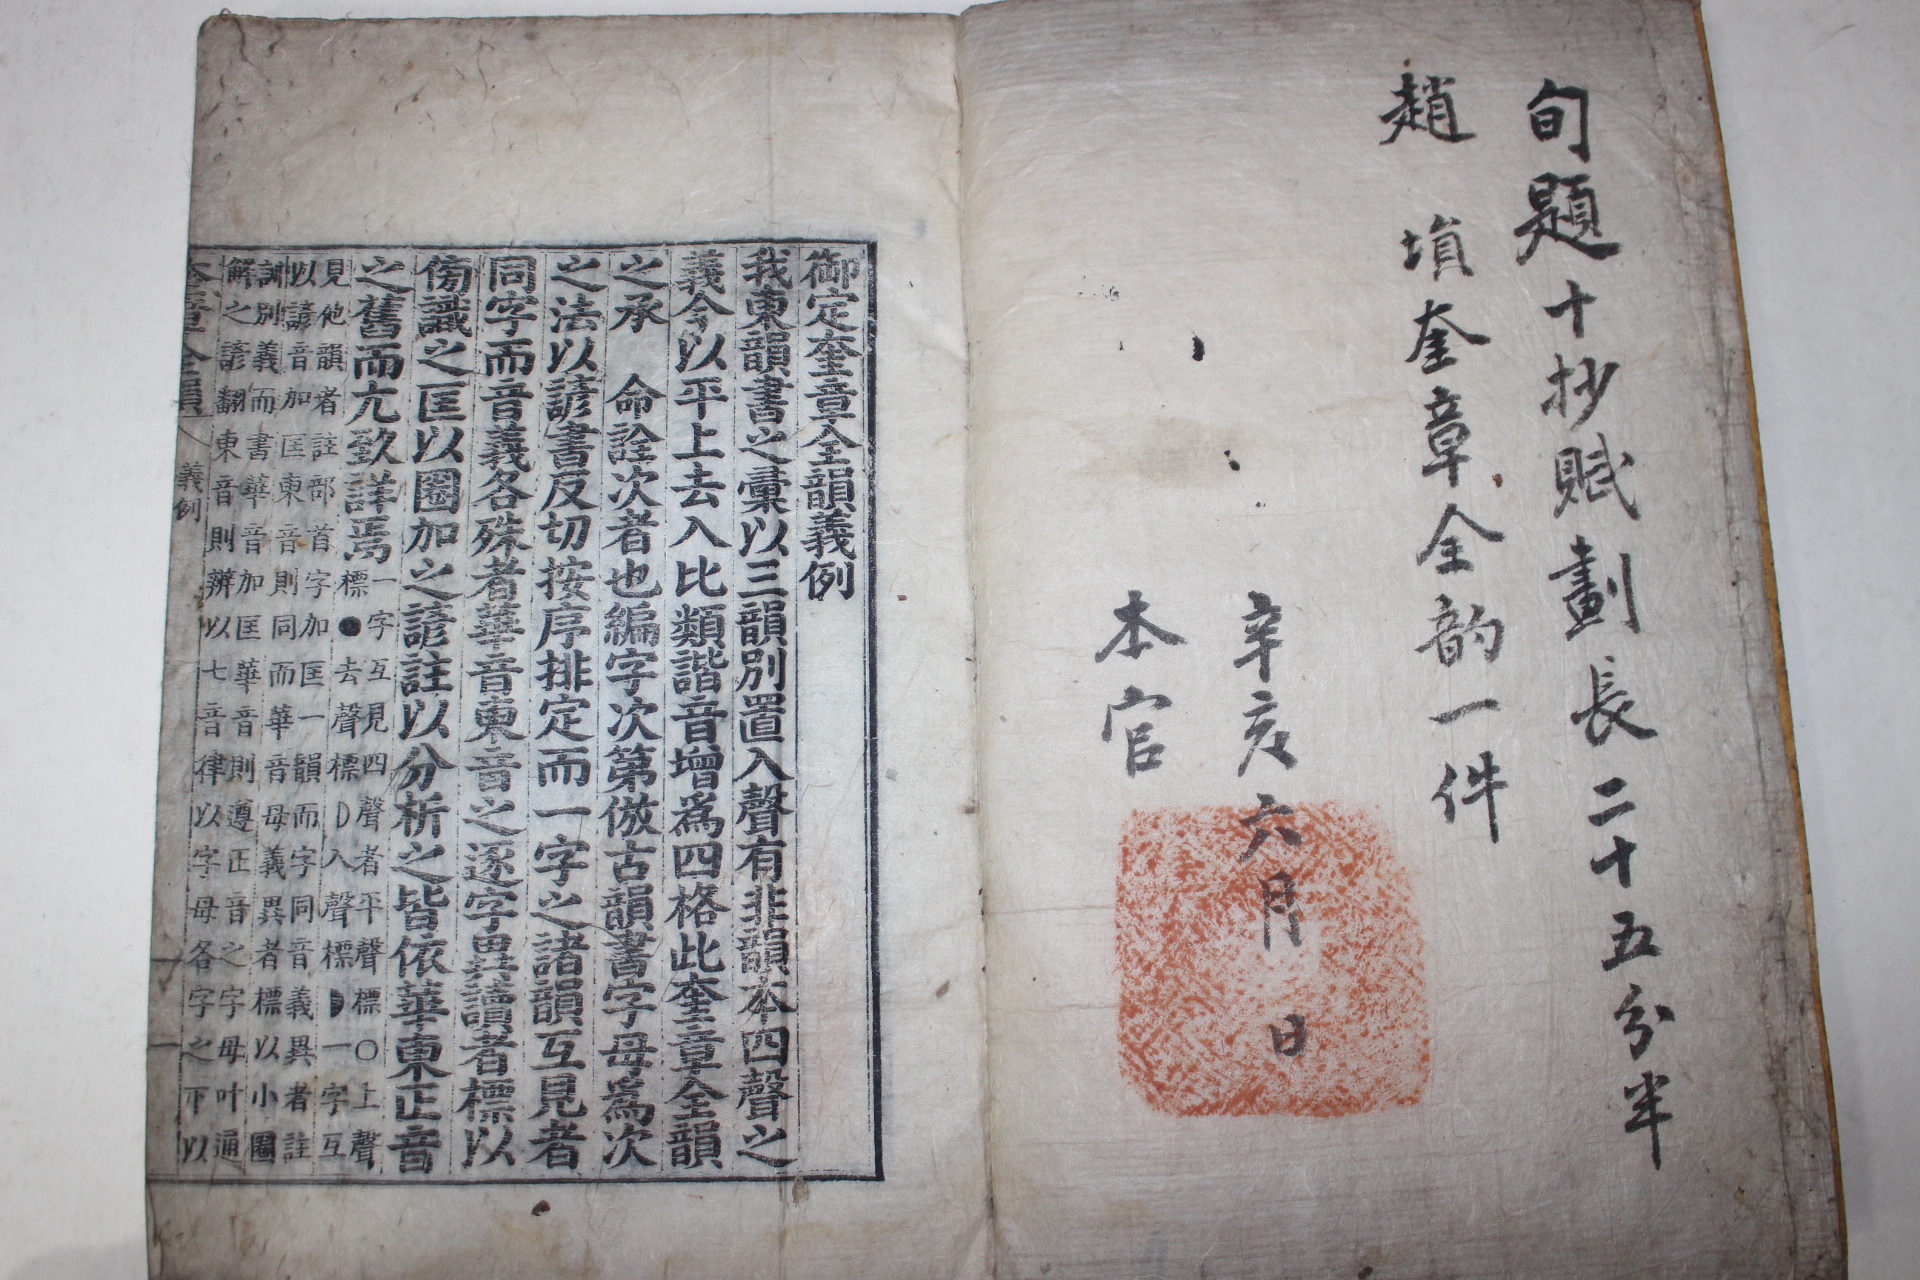 旬題十抄賦劃長二十五分半
趙 塤奎章全韵一件
辛亥六月 日
本官
御定奎章全韻義例
我東韻書之彙以三韻別置入聲有非韻本四聲之
義今以平上去入比類諧音增爲四格此奎章全韻
之承 命詮次者也編字次第倣古韻書字母爲次
之法以諺書反切按序排定而一字之諸韻互見者
同字而音義各殊者華音東音之逐字異讀者標以
傍識之匡以圈加之諺註以分析之皆依華東正音
之舊而尤致詳焉
一字互見四聲者平聲標○上聲
標●去聲標☽入聲標◗一字互
見他韻者註部首字加匡一韻而字同音義異者註
以諺音加匡東音則同而華音母義異者標以小圈
訓別義而書華音加匡華音則遵正音之字母叶通
解之諺翻東音則辨以七音律以字母各字之下以
奎章全韻 義例